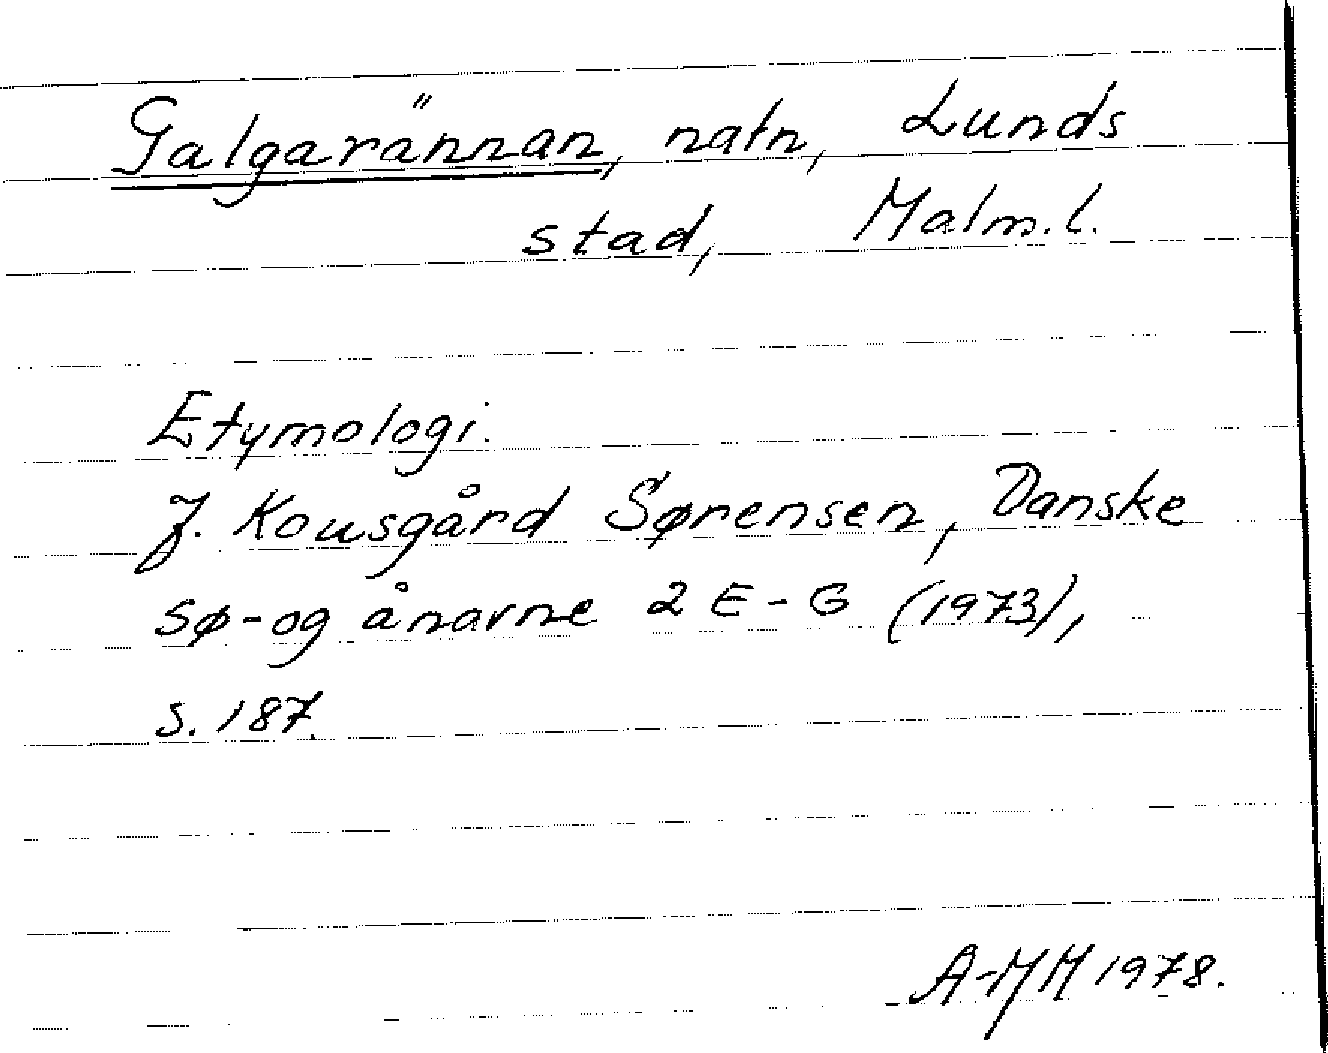 Galgarännan, natn, Lunds
stad, Malm. l.
Etymologi.
J. Kousgård Sørensen, Danske
sø- og ånavne 2 E-G (1973),
s. 187.
A-MM 1978.